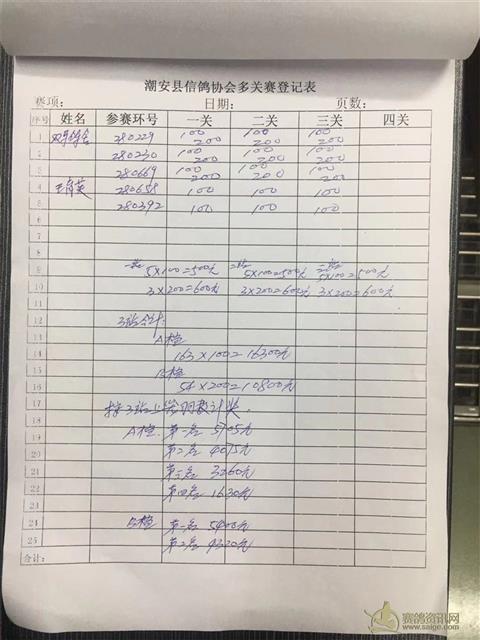 潮安县信鸽协会多关赛登记表
赛项： 日期： 页数：
序号 姓名 参赛环号 一关 二关 三关 四关
1 280229 100 200 100 200 100 200
2 280230 100 200 100 200 100 200
3 280669 100 200 100 200 100 200
4 280658 100 100 100
5 280392 100 100 100
6
7
8
9 5×100=500元 5×100=500元 5×100=500元
10 3×200=600元 3×200=600元 3×200=600元
11
12 3站合计:
13 A组
14 163×100=16300元
15 B组
16 54×200=10800元
17
18
19 A组. 第一名 5705元
20 第二名 4075元
21 第三名 3260元
22 第四名 1630元
23
24 B组 第一名 5400元
25 第二名 4320元
合计：
赛鸽资讯网
www.saige.com